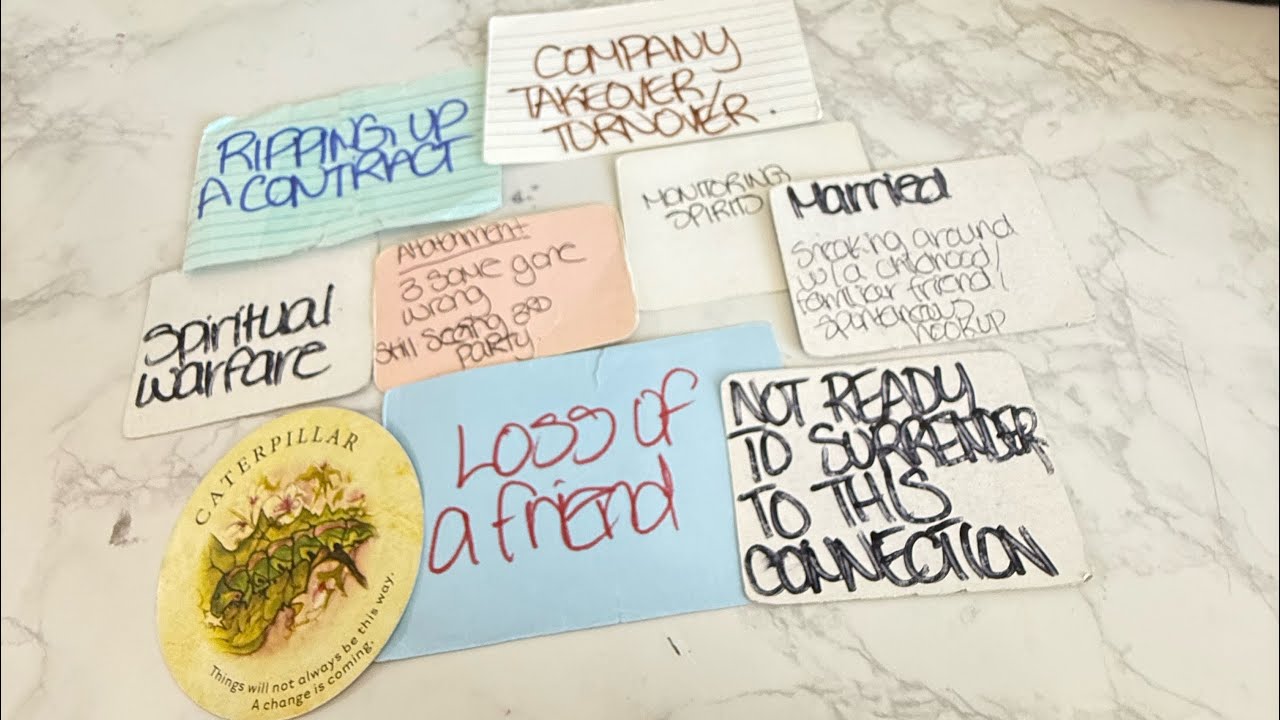 COMPANY
TAKEOVER/
TURNOVER.
RIPPING UP
A CONTRACT
MONITORING
SPIRITS
Married
Sneaking around
w/a childhood/
familiar friend/
spontaneous
hookup
Attatchment
3 some gone
wrong
Still seeing 3RD
party
Spiritual
warfare
Loss of
a friend
NOT READY
TO SURRENDER
TO THIS
CONNECTION
CATERPILLAR
Things will not always be this way.
A change is coming.